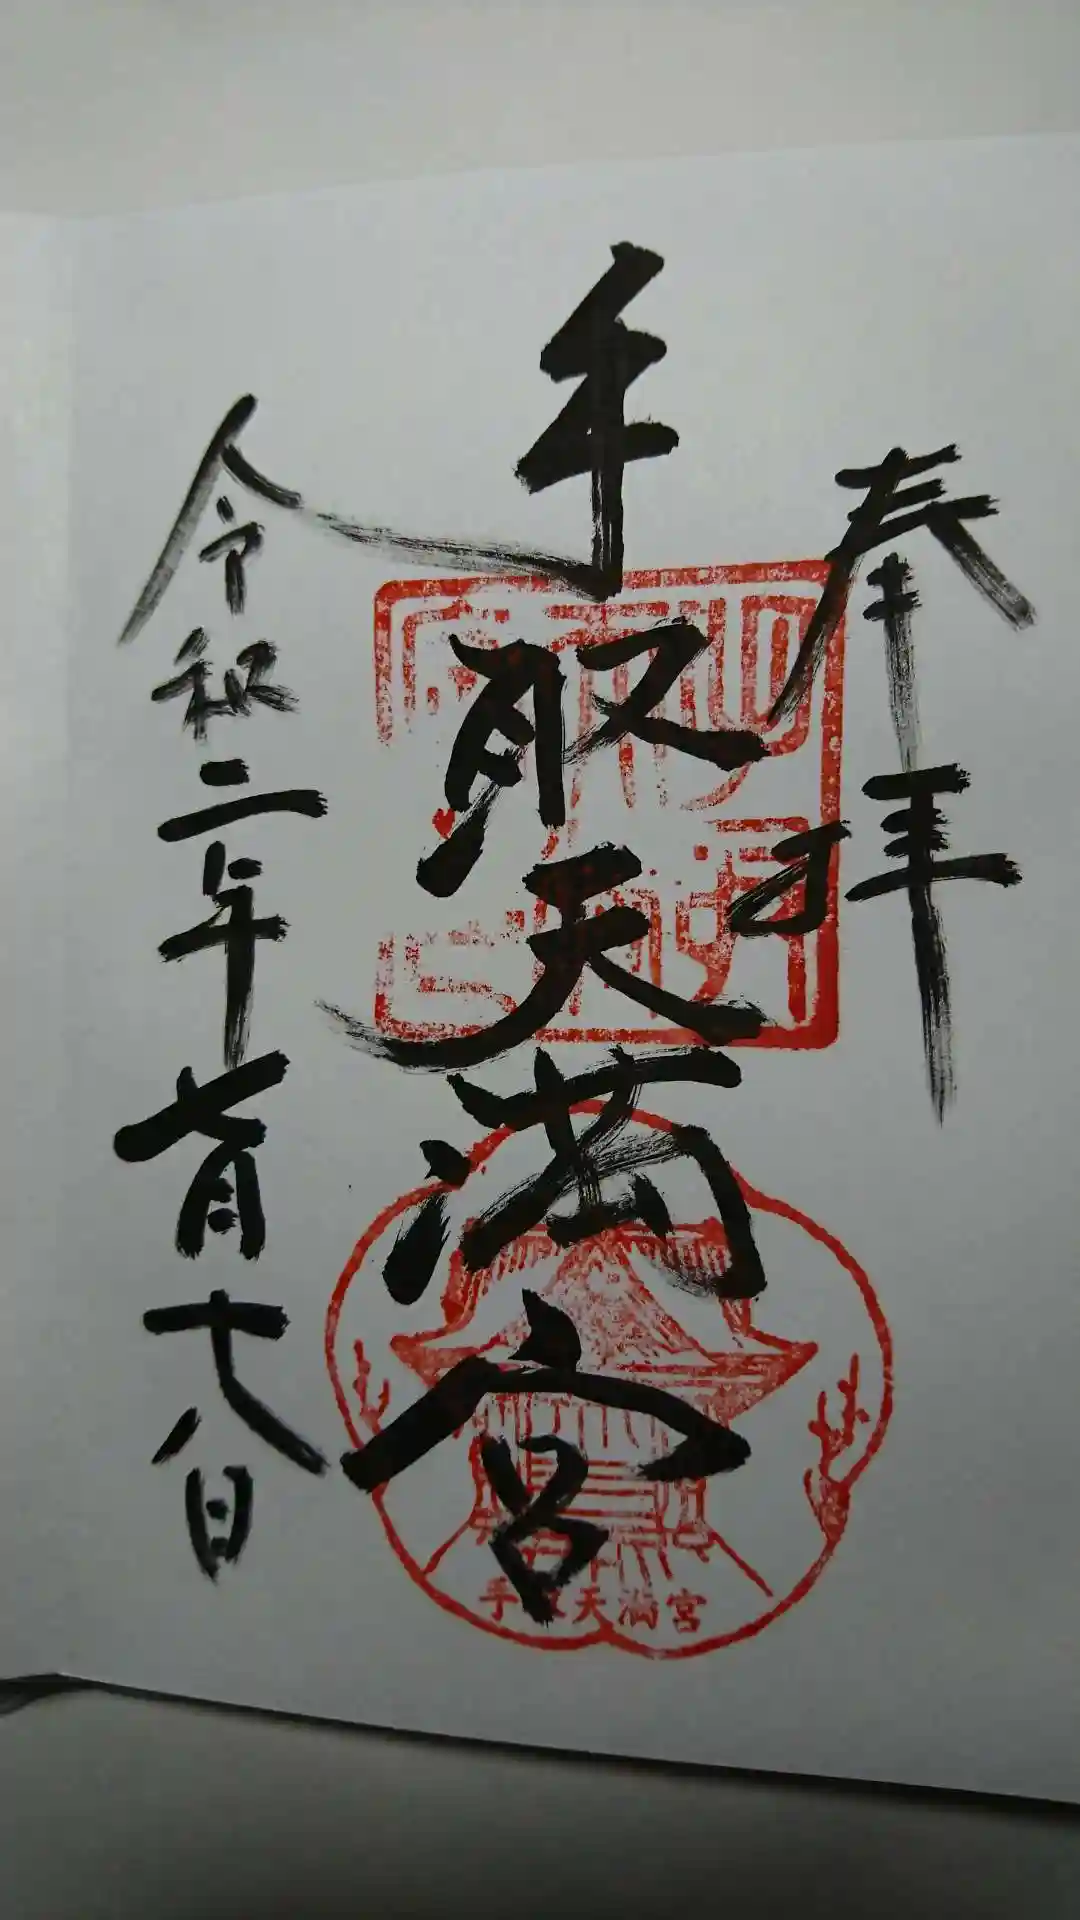 奉拝
手取天満宮
令和二年七月十八日
手取天満宮